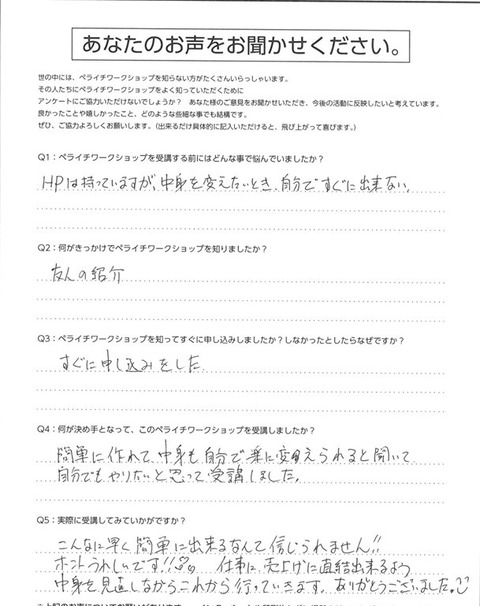 あなたのお声をお聞かせください。
世の中には、ペライチワークショップを知らない方がたくさんいらっしゃいます。
その人たちにペライチワークショップをよく知っていただくために
アンケートにご協力いただけないでしょうか？　あなた様のご意見をお聞かせいただき、今後の活動に反映したいと考えています。
良かったことや嬉しかったこと、どのような些細な事でも結構です。
ぜひ、ご協力よろしくお願いします。（出来るだけ具体的に記入いただけると、飛び上がって喜びます。）
Q1：ペライチワークショップを受講する前にはどんな事で悩んでいましたか？
HPは持っていますが、中身を変えたいとき、自分ですぐに出来ない。
Q2：何がきっかけでペライチワークショップを知りましたか？
友人の紹介
Q3：ペライチワークショップを知ってすぐに申し込みしましたか？しなかったとしたらなぜですか？
すぐに申し込みをした
Q4：何が決め手となって、このペライチワークショップを受講しましたか？
簡単に作れて、中身も自分で楽に変えられると聞いて
自分でもやりたいと思って受講しました。
Q5：実際に受講してみていかがですか？
こんなに早く簡単に出来るなんて信じられません!!
ホントうれしいです!!　仕事に、売上げに直結出来るよう
中身を見直しながらこれから行っていきます。ありがとうございました。